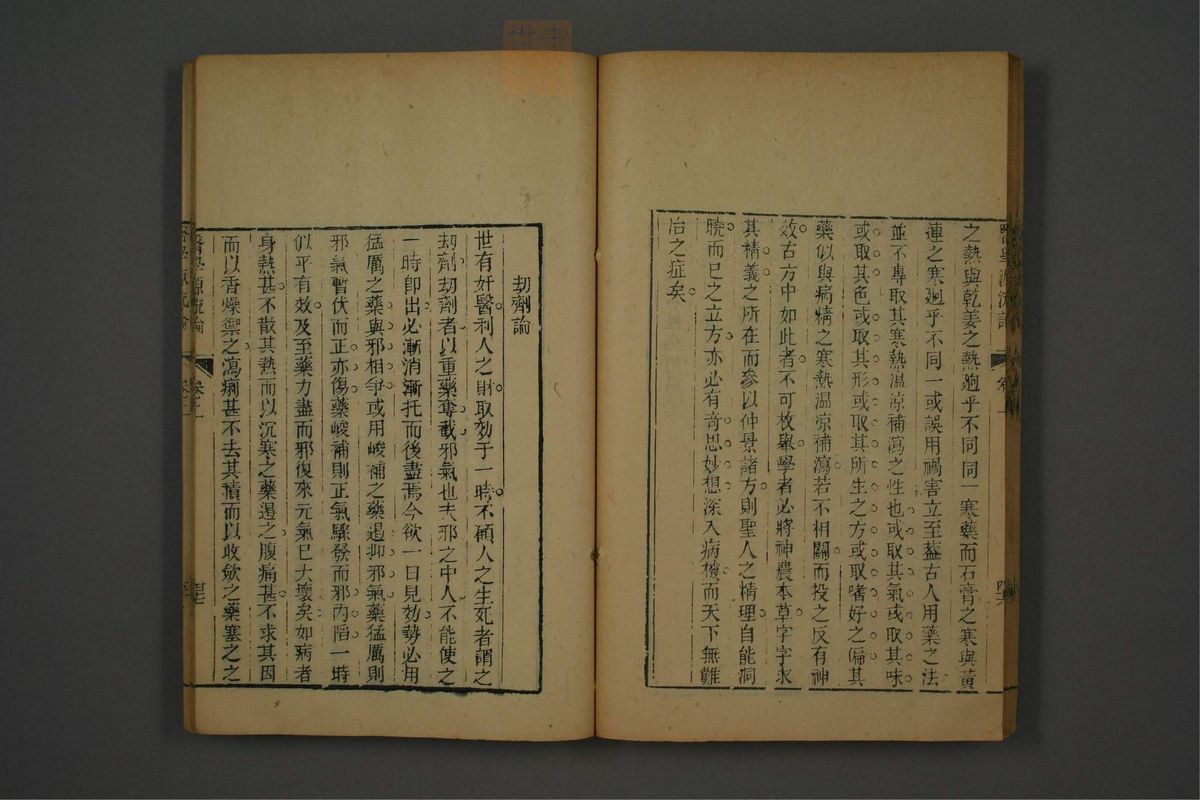 之熱與乾姜之熱廻乎不同同一寒藥而石膏之寒與黃
連之寒廻乎不同一或誤用禍害立至蓋古人用藥之法
並不專取其寒熱温涼補瀉之性也或取其氣或取其味
或取其色或取其形或取其所生之方或取嗜好之偏其
藥似與病情之寒熱温涼補瀉若不相關而投之反有神
效古方中如此者不可枚舉學者必將神農本草字字求
其精義之所在而參以仲景諸方則聖人之情理自能洞
曉而已之立方亦必有奇思妙想深入病機而天下無難
治之症矣
劫劑論
世有奸醫利人之財取効于一時不顧人之生死者謂之
劫劑劫劑者以重藥奪截邪氣也夫邪之中人不能使之
一時卽出必漸消漸托而後盡焉今欲一日見効勢必用
猛厲之藥與邪相爭或用峻補之藥遏抑邪氣藥猛厲則
邪氣暫伏而正亦傷藥峻補則正氣驟發而邪內陷一時
似乎有效及至藥力盡而邪復來元氣已大壞矣如病者
身熱甚不散其熱而以沉寒之藥遏之腹痛甚不求其因
而以香燥禦之瀉痢甚不去其積而以收斂之藥塞之之
醫學源流論
卷之